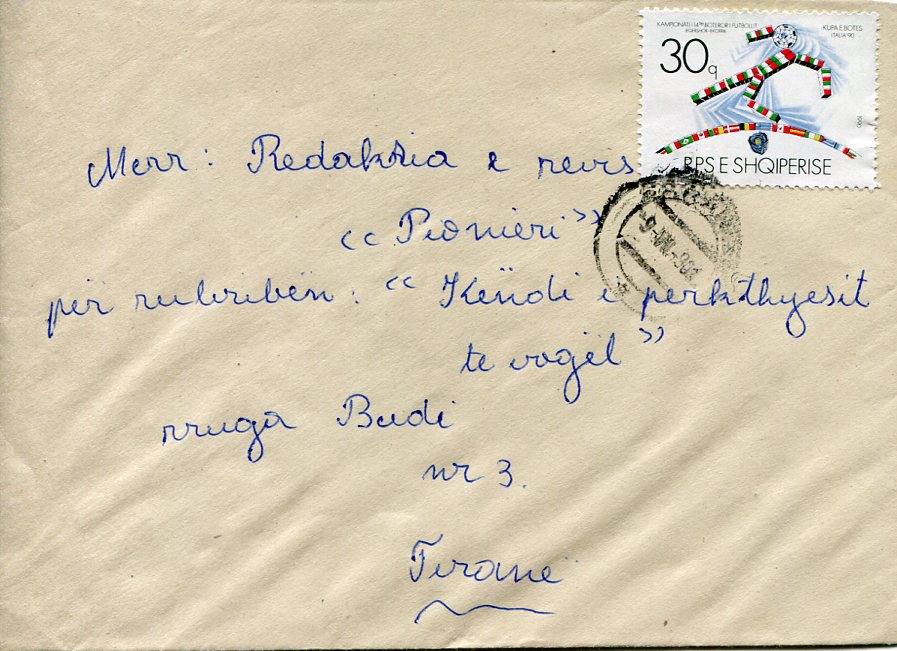 KAMPIONATI I 14të BOTEROR I FUTBOLLIT
KUPA E BOTES
ITALIA '90
30q
1990
RPS E SHQIPERISE
Merr: Redaksia e revis
<< Pionieri >>
për rubrikën: " Këndi i përkthyesit
te vogël "
rruga Budi
nr 3.
Tiranë